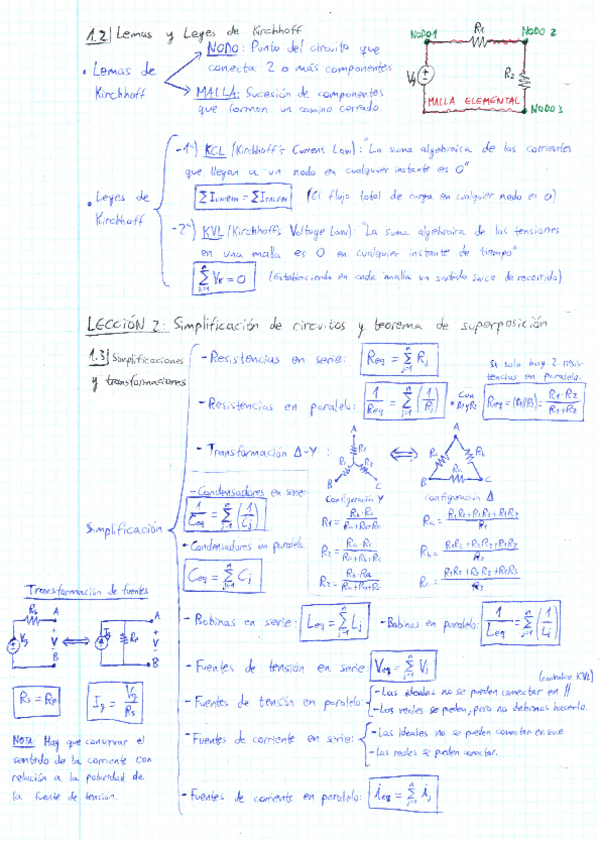 1.2 Lemas y Leyes de Kirchhoff
• Lemas de Kirchhoff
NODO: Punto del circuito que
conecta 2 o más componentes
MALLA: Sucesión de componentes
que forman un camino cerrado.
NODO 1
R1
NODO 2
Vg
R2
MALLA ELEMENTAL
NODO 3
• Leyes de Kirchhoff
-1ª) KCL (Kirchhoff's Current Law): "La suma algebraica de las corrientes
que llegan a un nodo en cualquier instante es 0"
(El flujo total de carga en cualquier nodo es 0)
-2ª) KVL (Kirchhoff's Voltage Law): "La suma algebraica de las tensiones
en una malla es 0 en cualquier instante de tiempo"
(Estableciendo en cada malla un sentido único de recorrido)
LECCIÓN 2: Simplificación de circuitos y teorema de superposición
1.3 Simplificaciones
y transformaciones
Simplificación
- Resistencias en serie: Req = Σ Rj
Si solo hay 2 resis-
tencias en paralelo.
- Resistencias en paralelo: 1/Req = Σ (1/Rj)
• Con R1 y R2
Req = (R1||R2) = R1·R2/R1+R2
- Transformación Δ-Y:
A
B
C
A
B
C
Configuración Y
Configuración Δ
- Condensadores en serie:
1/Ceq = Σ (1/Cj)
• Condensadores en paralelo:
Ceq = Σ Cj
- Bobinas en serie: Leq = Σ Lj
- Bobinas en paralelo: 1/Leq = Σ (1/Lj)
- Fuentes de tensión en serie: Veq = Σ Vj
(contradice KVL)
- Fuentes de tensión en paralelo:
- Las ideales no se pueden conectar en //
- Las reales se pueden, pero no debemos hacerlo.
- Fuentes de corriente en serie:
- Las ideales no se pueden conectar en serie
- Las reales se pueden conectar.
- Fuentes de corriente en paralelo: ieq = Σ ij
Transformación de fuentes
Rs
A
Vg
V
B
Ig
Rp
A
V
B
Rs = Rp
Ig = Vg/Rs
NOTA: Hay que conservar el
sentido de la corriente con
relación a la polaridad de
la fuente de tensión.